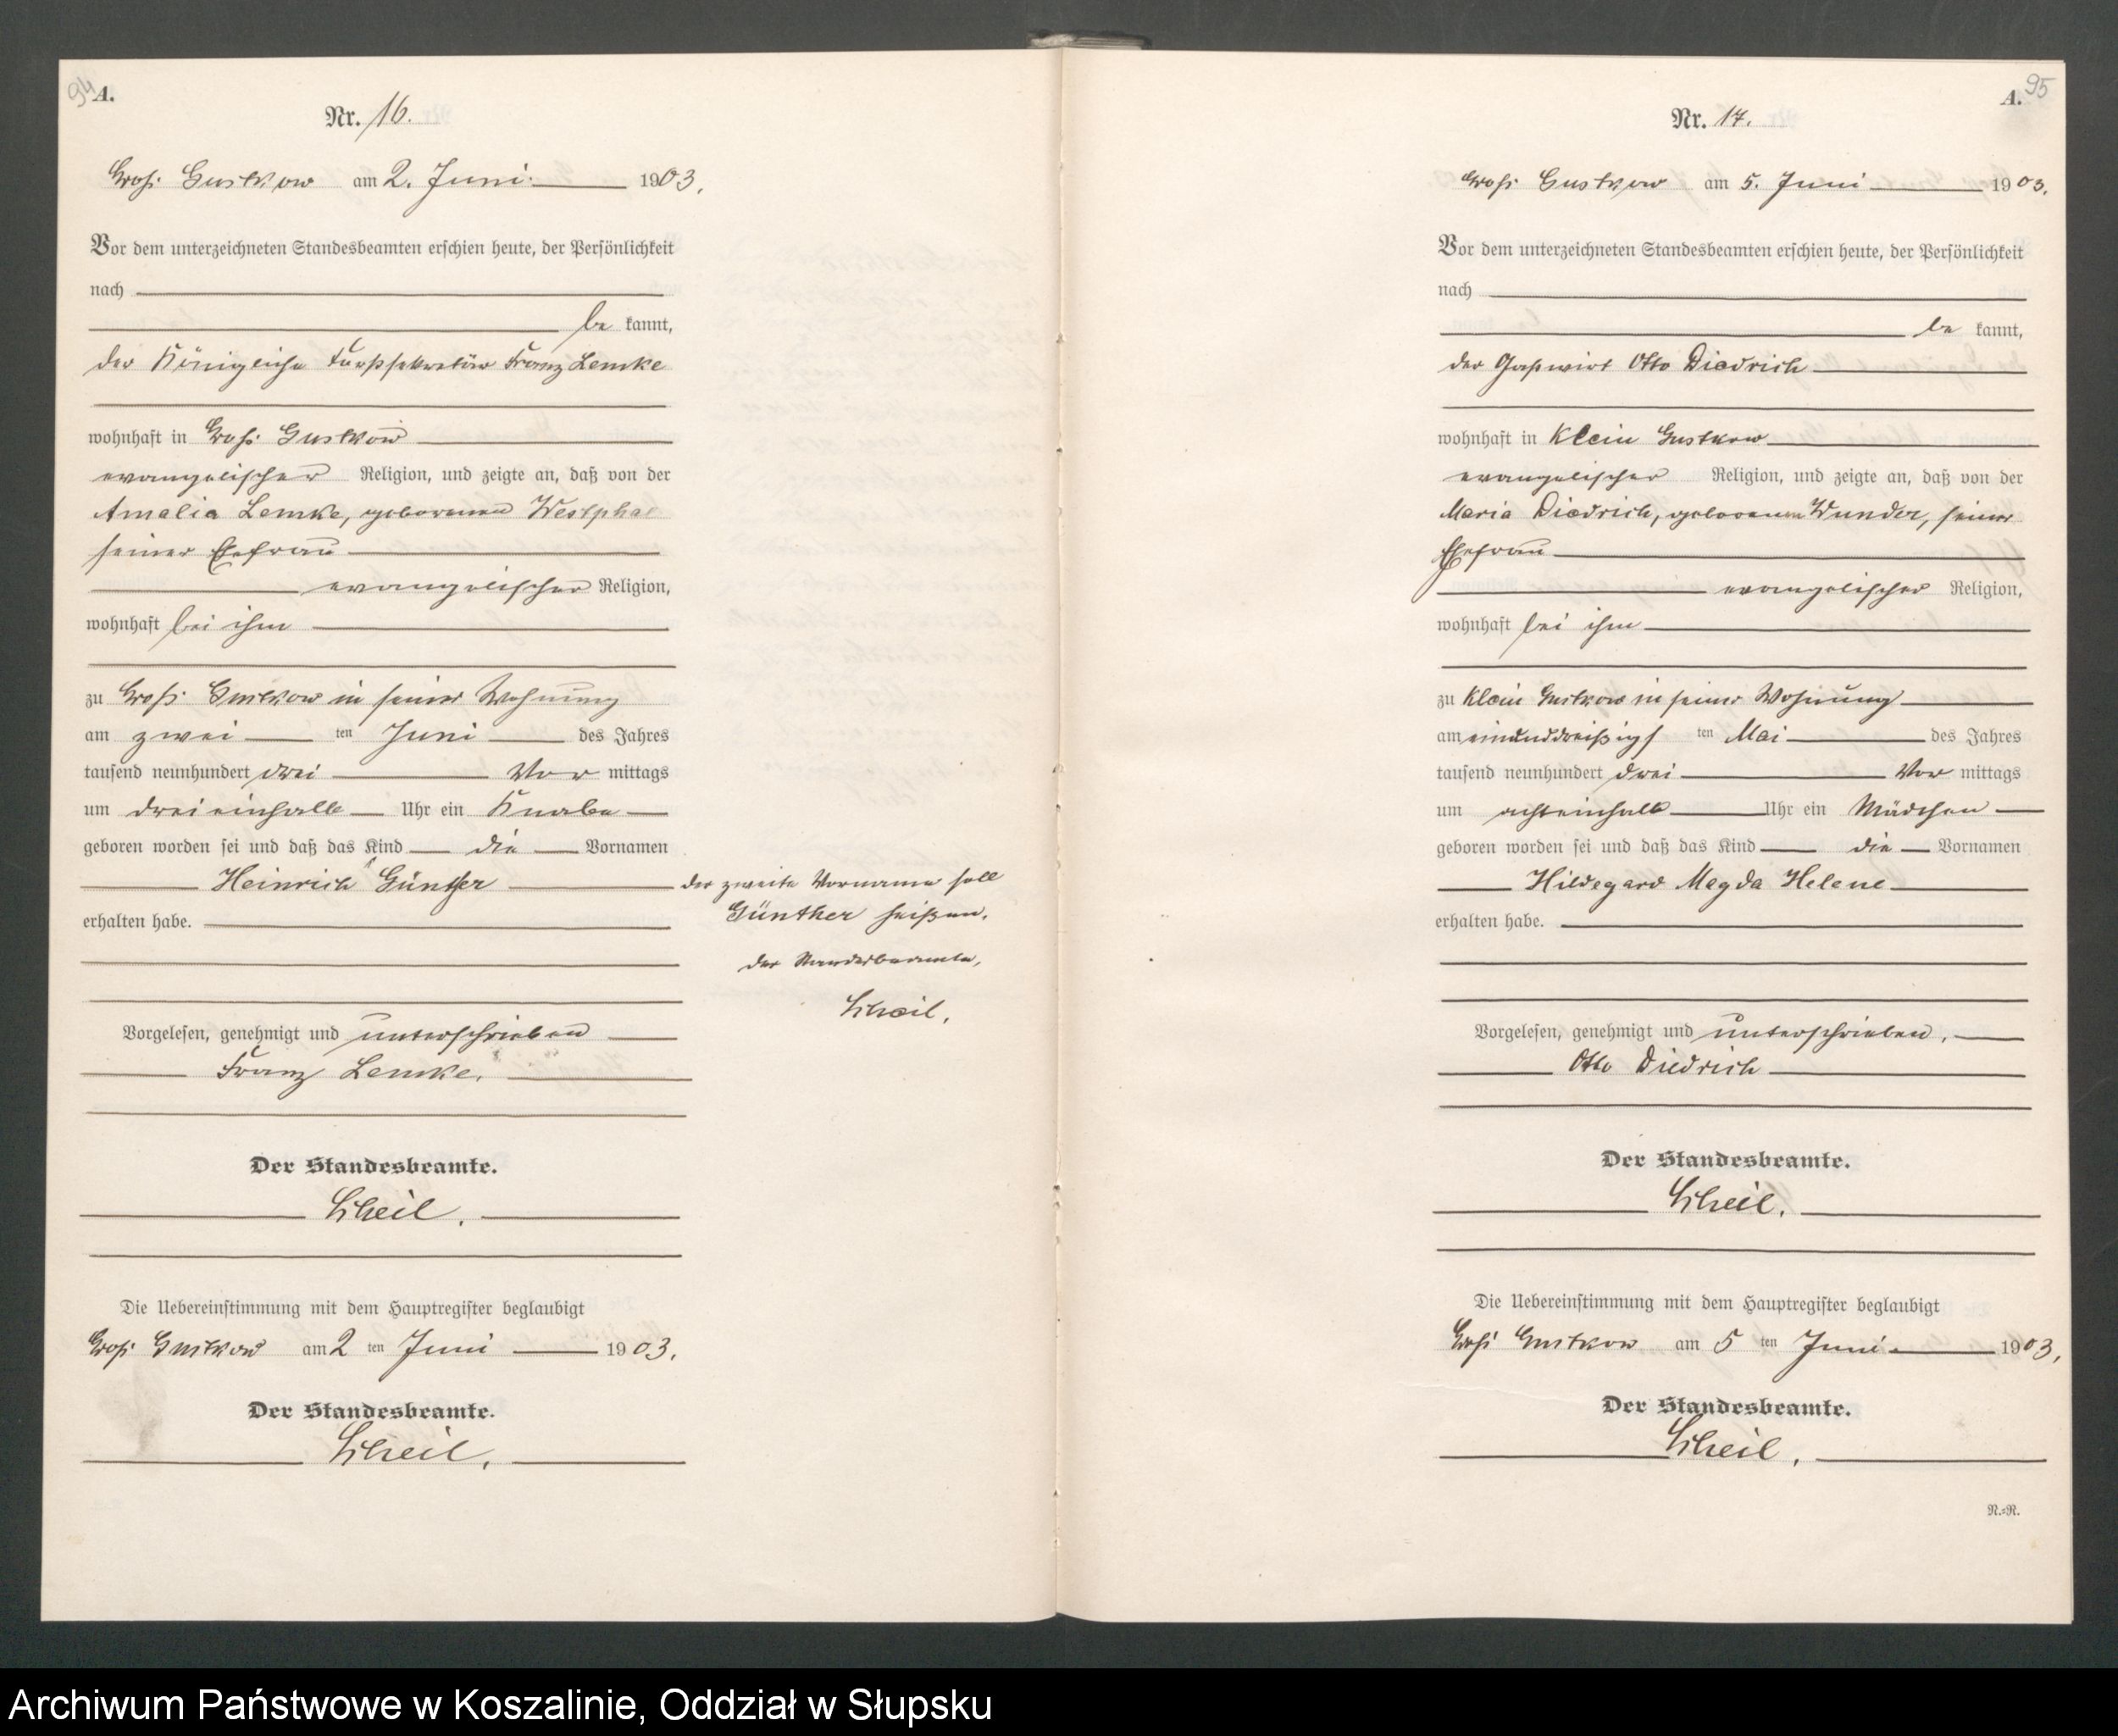 94
A.
Nr. 16.
Groß Gustkow am 2. Juni 1903.
Vor dem unterzeichneten Standesbeamten erschien heute, der Persönlichkeit
nach
be kannt,
der Königliche Franz Lemke
wohnhaft in Groß Gustkow
evangelischer Religion, und zeigte an, daß von der
Amalia Lemke, geborenen Westphal
seiner Ehefrau
evangelischer Religion,
wohnhaft bei ihm
zu Groß Gustkow in seiner Wohnung
am zwei ten Juni des Jahres
tausend neunhundert drei Vor mittags
um dreieinhalb Uhr ein Knabe
geboren worden sei und daß das Kind die Vornamen
Heinrich Günther
erhalten habe.
der zweite Vorname soll
Günther heißen.
der Standesbeamte,
Scheil.
Vorgelesen, genehmigt und unterschrieben
Franz Lemke.
Der Standesbeamte.
Scheil.
Die Uebereinstimmung mit dem Hauptregister beglaubigt
Groß Gustkow am 2 ten Juni 1903.
Der Standesbeamte.
Scheil.
95
A.
Nr. 17.
Groß Gustkow am 5. Juni 1903.
Vor dem unterzeichneten Standesbeamten erschien heute, der Persönlichkeit
nach
be kannt,
der Gastwirt Otto Diedrich
wohnhaft in Klein Gustkow
evangelischer Religion, und zeigte an, daß von der
Maria Diedrich, geborenen Wunder, seiner
Ehefrau
evangelischer Religion,
wohnhaft bei ihm
zu Klein Gustkow in seiner Wohnung
am einunddreißigs ten Mai des Jahres
tausend neunhundert drei Vor mittags
um achteinhalb Uhr ein Mädchen
geboren worden sei und daß das Kind die Vornamen
Hildegard Magda Helene
erhalten habe.
Vorgelesen, genehmigt und unterschrieben.
Otto Diedrich
Der Standesbeamte.
Scheil.
Die Uebereinstimmung mit dem Hauptregister beglaubigt
Groß Gustkow am 5 ten Juni 1903.
Der Standesbeamte.
Scheil.
N.=N.
Archiwum Państwowe w Koszalinie, Oddział w Słupsku